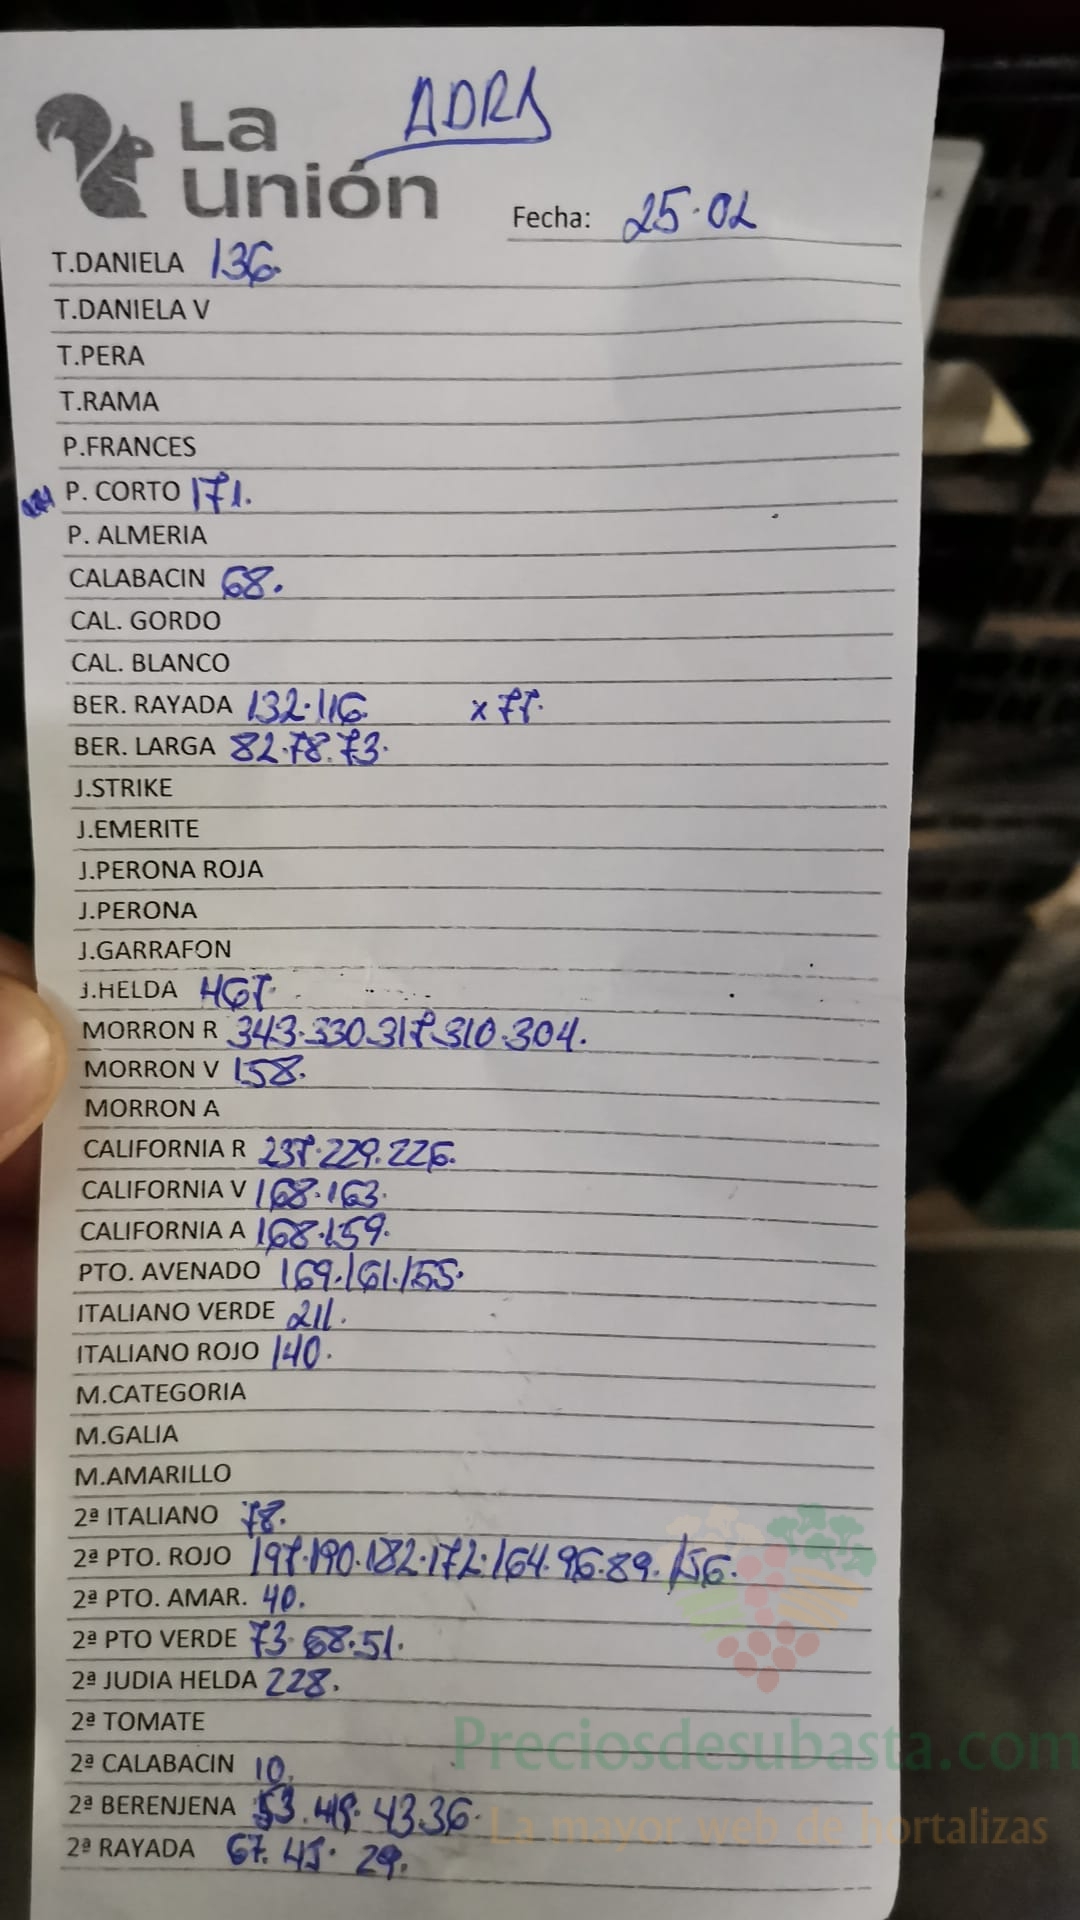 ADRA
La
unión
Fecha: 25.02
T.DANIELA 136.
T.DANIELA V
T.PERA
T.RAMA
P.FRANCES
P. CORTO 171.
P. ALMERIA
CALABACIN 68.
CAL. GORDO
CAL. BLANCO
BER. RAYADA 132.116 x 77.
BER. LARGA 82.78.73.
J.STRIKE
J.EMERITE
J.PERONA ROJA
J.PERONA
J.GARRAFON
J.HELDA 467.
MORRON R 343.330.317.310.304.
MORRON V 158.
MORRON A
CALIFORNIA R 237.229.226.
CALIFORNIA V 168.163.
CALIFORNIA A 168.159.
PTO. AVENADO 169.161.155.
ITALIANO VERDE 211.
ITALIANO ROJO 140.
M.CATEGORIA
M.GALIA
M.AMARILLO
2ª ITALIANO 78.
2ª PTO. ROJO 197.190.182.172.164.96.89.156.
2ª PTO. AMAR. 40.
2ª PTO VERDE 73.68.51.
2ª JUDIA HELDA 228.
2ª TOMATE
Preciosdesubasta.com
2ª CALABACIN 10.
2ª BERENJENA 53. 43.36.
La mayor web de hortalizas
2ª RAYADA 67.45. 29.